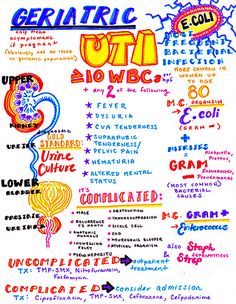 GERIATRIC
only treat
asymptomatic
if pregnant
UTI
≥10 WBCs...
+ any 2 of the following
E. COLI
MOST FREQUENT
BACTERIAL
INFECTION
MORE COMMON IN
WOMEN UP
TO AGE
80
UPPER
KIDNEY
URETER
GOLD
STANDARD:
Urine
Culture
LOWER
BLADDER
PROSTATE
URETHRA
★ FEVER
★ DYSURIA
★ CVA TENDERNESS
★ SUPRAPUBIC
TENDERNESS/
PELVIC PAIN
★ HEMATURIA
★ ALTERED MENTAL
STATUS
M.C. ORGANISM
→ E. coli
(GRAM -)
+
NITRITES =
GRAM -
(MOST COMMON)
BACTERIAL
CAUSES
M.C. GRAM +
→ Enterococcus
also Staph
& Strep
it's COMPLICATED:
★ MALE
★ OBSTRUCTION
★ SICKLE CELL
UNCOMPLICATED → outpatient
treatment
TX: TMP-SMX, Nitrofurantoin,
Fosfomycin
COMPLICATED → Consider admission
TX: Ciprofloxacin, TMP-SMX, Ceftriaxone, Cefpodoxime